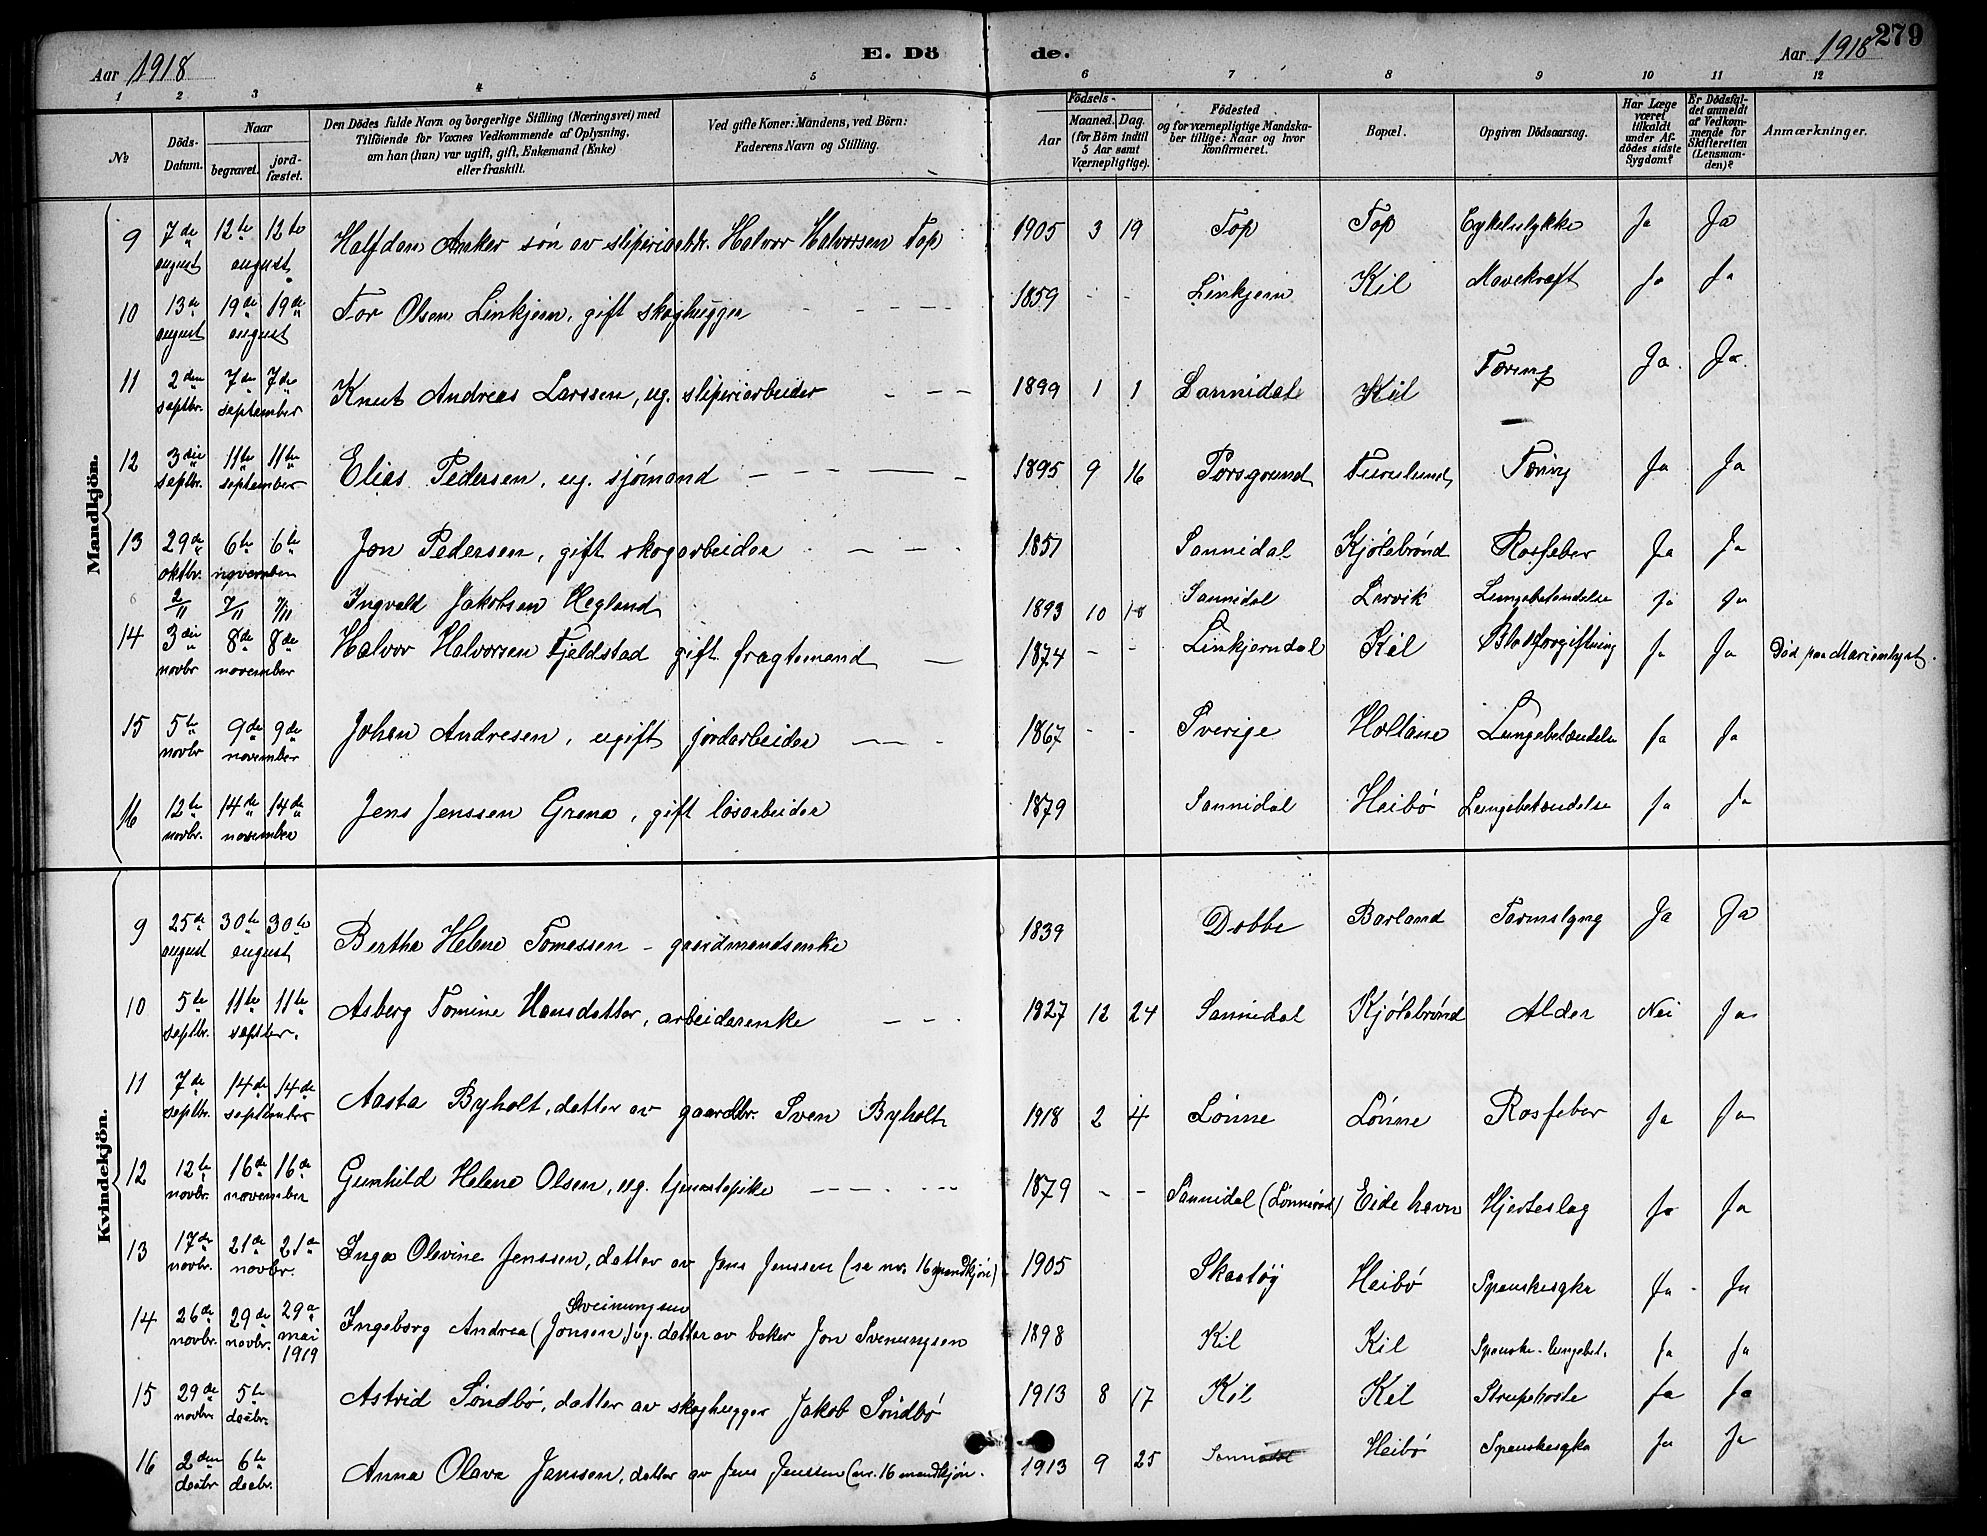 279
Aar 1918
E. Dö
de.
Aar 1918
1 2 3 4 5 6 7 8 9 10 11 12
№
Döds-Datum.
Naar
begravet.
jord-fæstet.
Den Dödes fulde Navn og borgerlige Stilling (Næringsvei) med
Tilföiende for Voxnes Vedkommende af Oplysning,
om han (hun) var ugift, gift, Enkemand (Enke)
eller fraskilt.
Ved gifte Koner: Mandens, ved Börn:
Faderens Navn og Stilling.
Födsels-
Aar
Maaned. Dag.
(for Börn indtil
5 Aar samt
Værnepligtige).
Födested
og for værnepligtige Mandska-
ber tillige: Naar og hvor
konfirmeret.
Bopæl.
Opgiven Dödsaarsag.
Har Læge
været
tilkaldt
under Af-
dödes sidste
Sygdom?
Er Dödsfal-
det anmeldt
af Vedkom-
mende for
Skifteretten
(Lensman-
den)?
Anmærkninger.
Mandkjön.
9 7de august 12te 12te august Halfdan Anker søn av sliperiarbdr. Halvor Halvorsen Top 1905 3 19 Top Top Cykelulykke Ja Ja
10 13de august 19de 19de august Tor Olsen Linkjern, gift skoghugger - - - 1859 - - Linkjern Kil Mavekræft Ja Ja
11 2den septbr. 7de 7de september Knut Andreas Larssen, ug. sliperiarbeider - - - 1899 1 1 Sannidal Kil Tæring Ja Ja
12 3die septbr. 11te 11te september Elias Pedersen, ug. sjømand - - - 1895 9 16 Porsgrund Furulund Tæring Ja Ja
13 29de oktbr. 6te 6te november Jon Pedersen, gift skogarbeider - - - 1851 Sannidal Kjølebrønd Rosfeber Ja Ja
2/11 7/11 7/11 Ingvald Jakobsen Hegland 1893 10 18 Sannidal Larvik Lungebetændelse Ja Ja
14 3die novbr 8de 8de november Halvor Halvorsen Fjeldstad gift fragtemand - 1874 - - Linkjerndal Kil Blodforgiftning Ja Ja Død paa Marienlyst.
15 5te novbr 9de 9de november Johan Andresen, ugift jordarbeider - - - 1867 - - Sverige Holtane Lungebetændelse Ja Ja
16 12te novbr. 14de 14de november Jens Jenssen Grena, gift løsarbeider 1879 Sannidal Heibø Lungebetændelse Ja Ja
Kvindekjön.
9 25de august 30te 30te august Bertha Helene Tomassen - gaardmandsenke 1839 Dobbe Barland Tarmslyng Ja Ja
10 5te septbr. 11te 11te septbr. Asberg Tomine Hansdatter, arbeiderenke - - . 1827 12 24 Sannidal Kjølebrønd Alder Nei Ja
11 7de septbr. 14de 14de september Aasta Byholt, datter av gaardbr. Sven Byholt 1918 2 4 Lønne Lønne Rosfeber Ja Ja
12 12te novbr. 16de 16de november Gunhild Helene Olsen, ug. tjenestepike - - - 1879 - - Sannidal (Lønnerød) Eidehavn Hjerteslag Ja Ja
13 17de novbr. 21de 21de novbr. Inga Olevine Jenssen, datter av Jens Jenssen (se nr. 16 mandkjøn) 1905 Skaatøy Heibø Spanskesyke Ja Ja
14 26de novbr. 29de novbr. 29de mai 1919 Ingeborg Andrea (Jonsen) Sveinungsen ug. datter av baker Jon Svenungsen 1898 Kil Kil Spanske-lungebet. Ja Ja
15 29de novbr 5te decbr. Astrid Søndbø, datter av skoghugger Jakob Søndbø 1913 8 17 Kil Kil Strupehoste Ja Ja
16 2den decbr 6te decbr. Anna Olava Jenssen, datter av Jens Jenssen (nr. 16 mandkjøn. 1913 9 25 Sannidal Heibø Spanskesyke Ja Ja